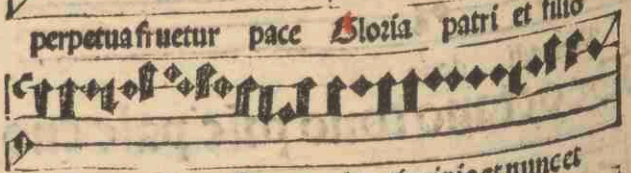 perpetua fruetur pace Gloria patri et filio
et nunc et